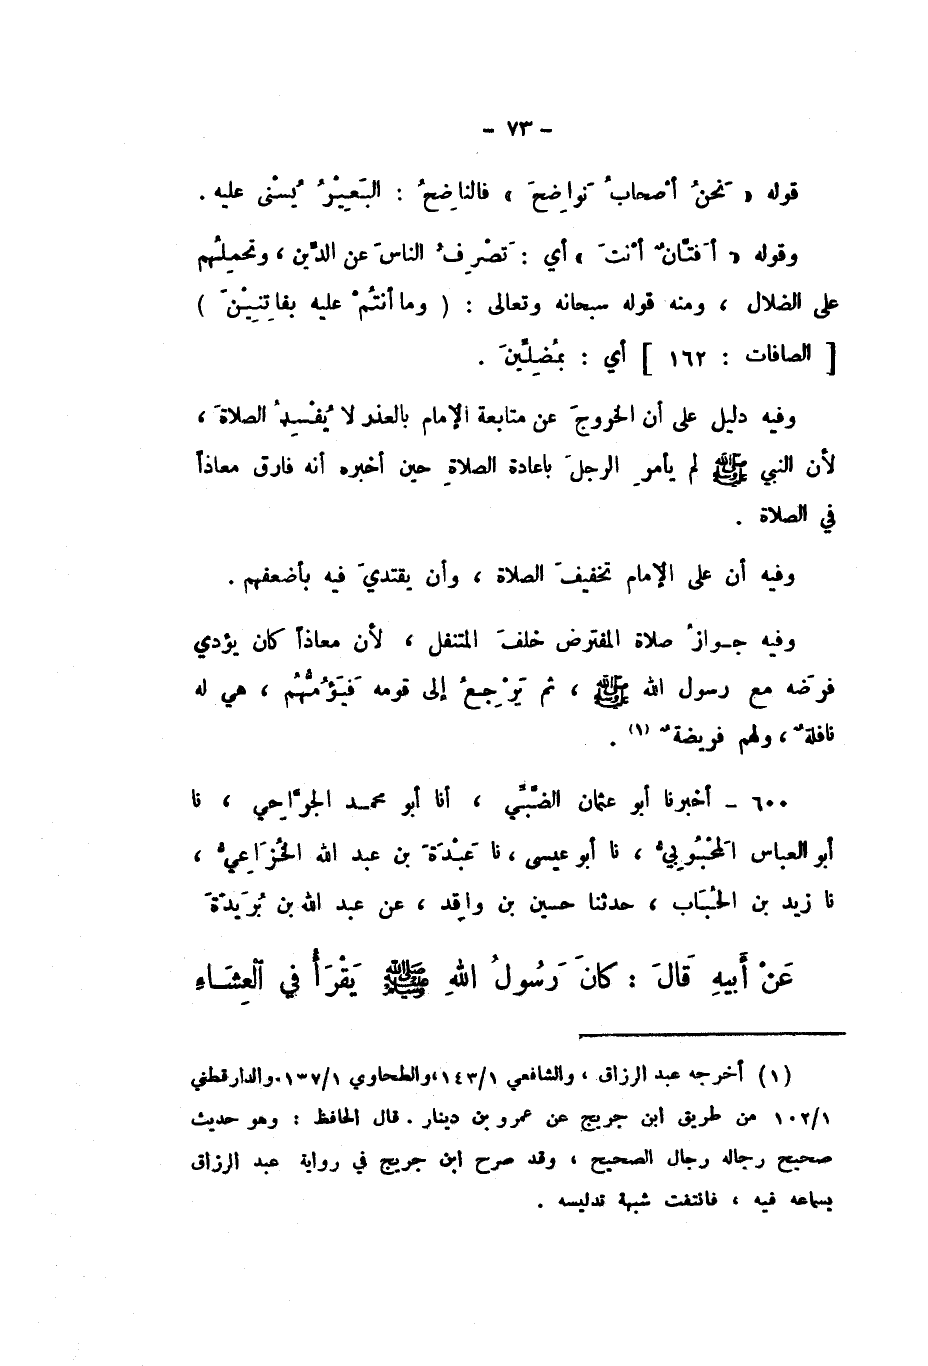 - ٧٣ -
قوله « نَحنُ أصحابُ نَواضِحَ » فالناضِحُ : البَعيرُ يُسْنى عليه .
وقوله « أَفَتَّانٌ أنْتَ » أي : تَصْرِفُ الناسَ عن الدِّين ، وتحمِلُهم
على الضلال ، ومنه قوله سبحانه وتعالى : ( وما أنتُمْ عليه بفاتِنِيْنَ )
[ الصافات : ١٦٢ ] أي : بمُضِلِّينَ .
وفيه دليل على أن الخروجَ عن متابعة الإمام بالعذر لا يُفْسِدُ الصلاةَ ،
لأن النبي ﷺ لم يأمرِ الرجلَ باعادة الصلاةِ حين أخبره أنه فارق معاذاً
في الصلاة .
وفيه أن على الإمام تخفيفَ الصلاة ، وأن يقتديَ فيه بأضعفهم .
وفيه جـوازُ صلاة المفترض خلفَ المتنفل ، لأن معاذاً كان يؤدي
فرضَه مع رسول الله ﷺ ، ثم يَرْجِعُ إلى قومه فيَؤُمُّهُم ، هي له
نافلةٌ ، ولهم فريضةٌ (١) .
٦٠٠ - أخبرنا أبو عثمان الضَّبِّي ، أنا أبو محمـد الجرَّاحي ، نا
أبو العباس المَحْبُوبيُّ ، نا أبو عيسى ، نا عَبْدَةَ بن عبد الله الخُزَاعيُّ ،
نا زيد بن الحُبَاب ، حدثنا حسين بن واقِد ، عن عبد الله بن بُرَيدَةَ
عَنْ أَبيهِ قَالَ : كانَ رَسُولُ اللهِ ﷺ يَقْرَأُ في اَلْعِشَـاءِ
(١) أخرجه عبد الرزاق ، والشافعي ١٤٣/١، والطحاوي ١٣٧/١. والدارقطني
١٠٢/١ من طريق ابن جريج عن عمرو بن دينار . قال الحافظ : وهو حديث
صحيح رجاله رجال الصحيح ، وقد صرح ابن جريج في رواية عبد الرزاق
بسماعه فيه ، فانتفت شبهة تدليسه .